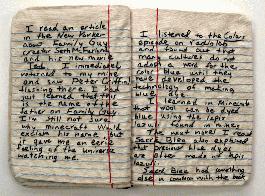 I read an article
in the New Yorker
about Family Guy
creator Seth McFarlane
and his new movie
Ted. I immediately
returned to my mine
and saw Peter C
flashing there. I had
just learned that this
is the name of the
father on Family Guy
Still not sure
why minecraft would
exclaim his name but
it gave me an eerie
feeling of the universe
watching me.
I listened to the Colors
episode on radiolab
and found out that
many cultures do not
adopt a word for the
color blue until they
have developed the
technology of making
I learned in Minecraft
that wool can be dyed
blue using the lapis
lazuli found in
The next novel I read
Sacré Bleu also explained
blue dyes
are made of lapis
lazuli
Sacré Bleu had something
else in common with the book